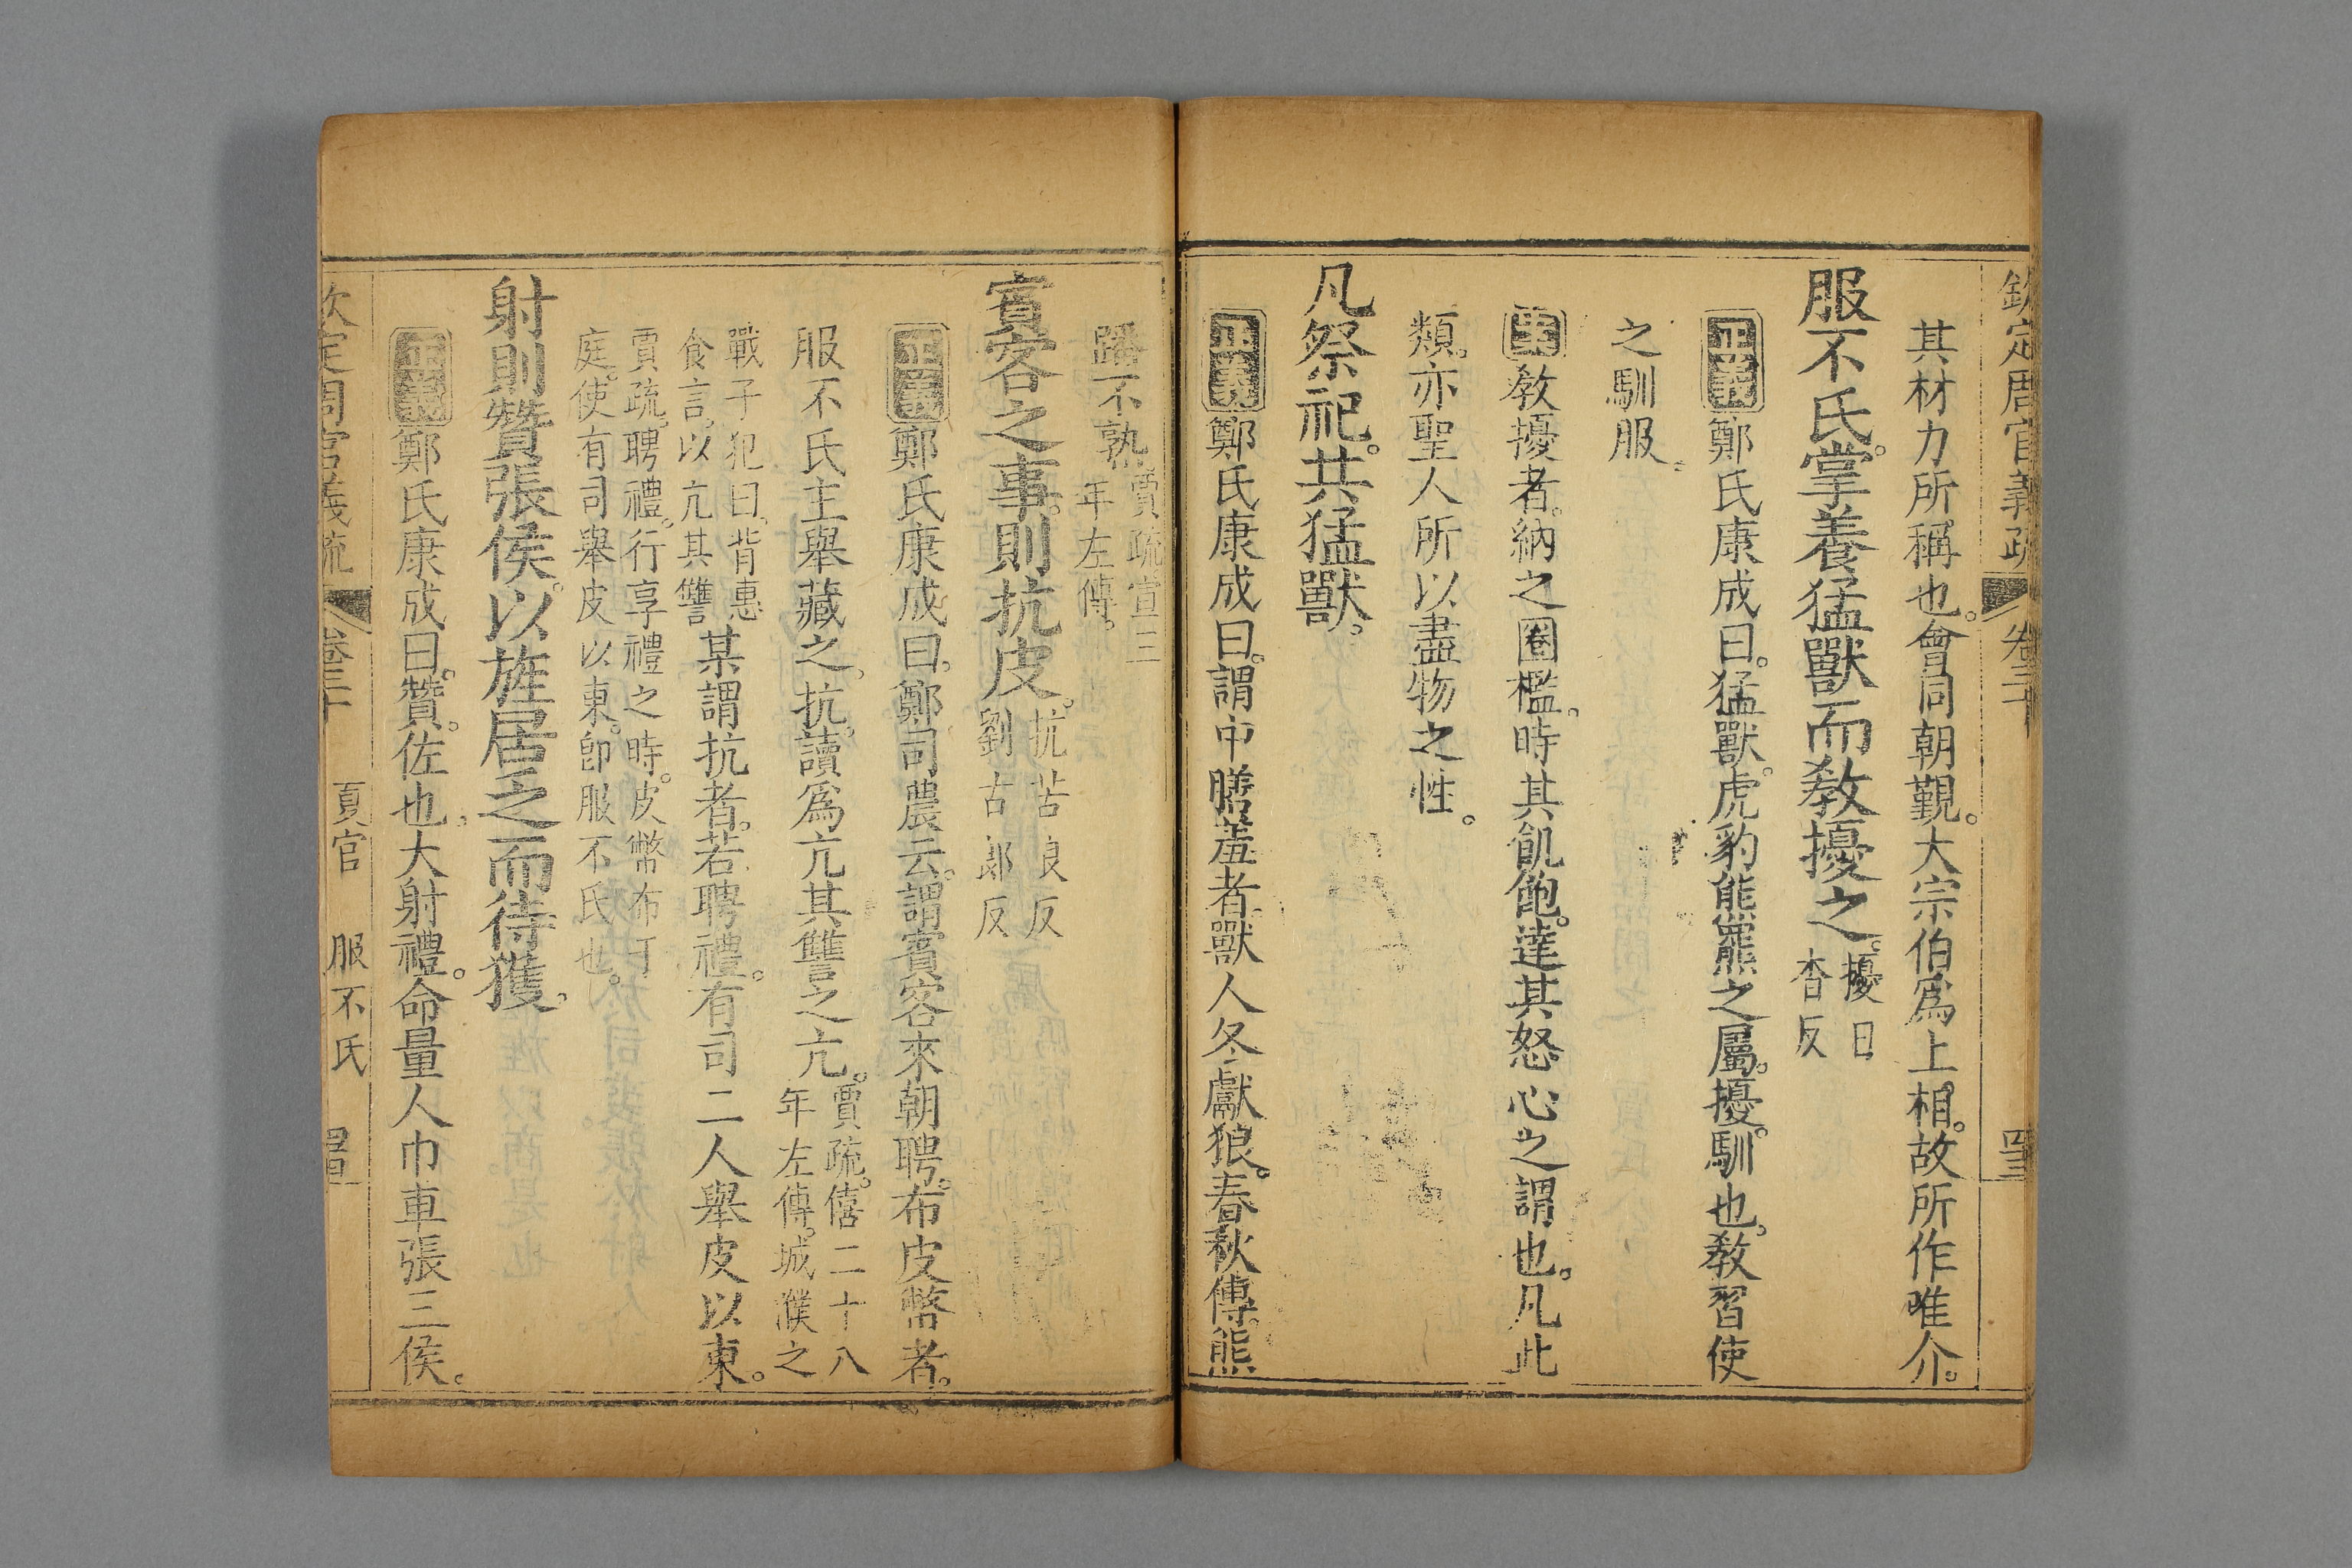 欽定周官義疏 卷三十 四三
其材力所稱也。會同朝覲。大宗伯爲上相。故所作唯介。
服不氏。掌養猛獸而敎擾之。擾日杳反
正義鄭氏康成曰。猛獸。虎豹熊羆之屬。擾。馴也。敎習使
之馴服。
案敎擾者。納之圈檻。時其飢飽。達其怒心之謂也。凡此
類。亦聖人所以盡物之性。
凡祭祀。共猛獸。
正義鄭氏康成曰。謂中膳羞者。獸人冬獻狼。春秋傳。熊
蹯不孰。賈疏宣二年左傳。
賓客之事。則抗皮。抗苦良反劉古郎反
正義鄭氏康成曰。鄭司農云。謂賓客來朝聘。布皮幣者。
服不氏主舉藏之。抗。讀爲亢其讐之亢。賈疏。僖二十八年左傳。城濮之
戰子犯曰。背惠食言。以亢其讐某謂抗者。若聘禮。有司二人舉皮以東。
賈疏。聘禮。行享禮之時。皮幣布于庭。使有司舉皮以東。卽服不氏也。
射則贊張侯。以旌居乏而待獲。
正義鄭氏康成曰。贊。佐也。大射禮。命量人巾車張三侯。
欽定周官義疏 卷三十 夏官 服不氏